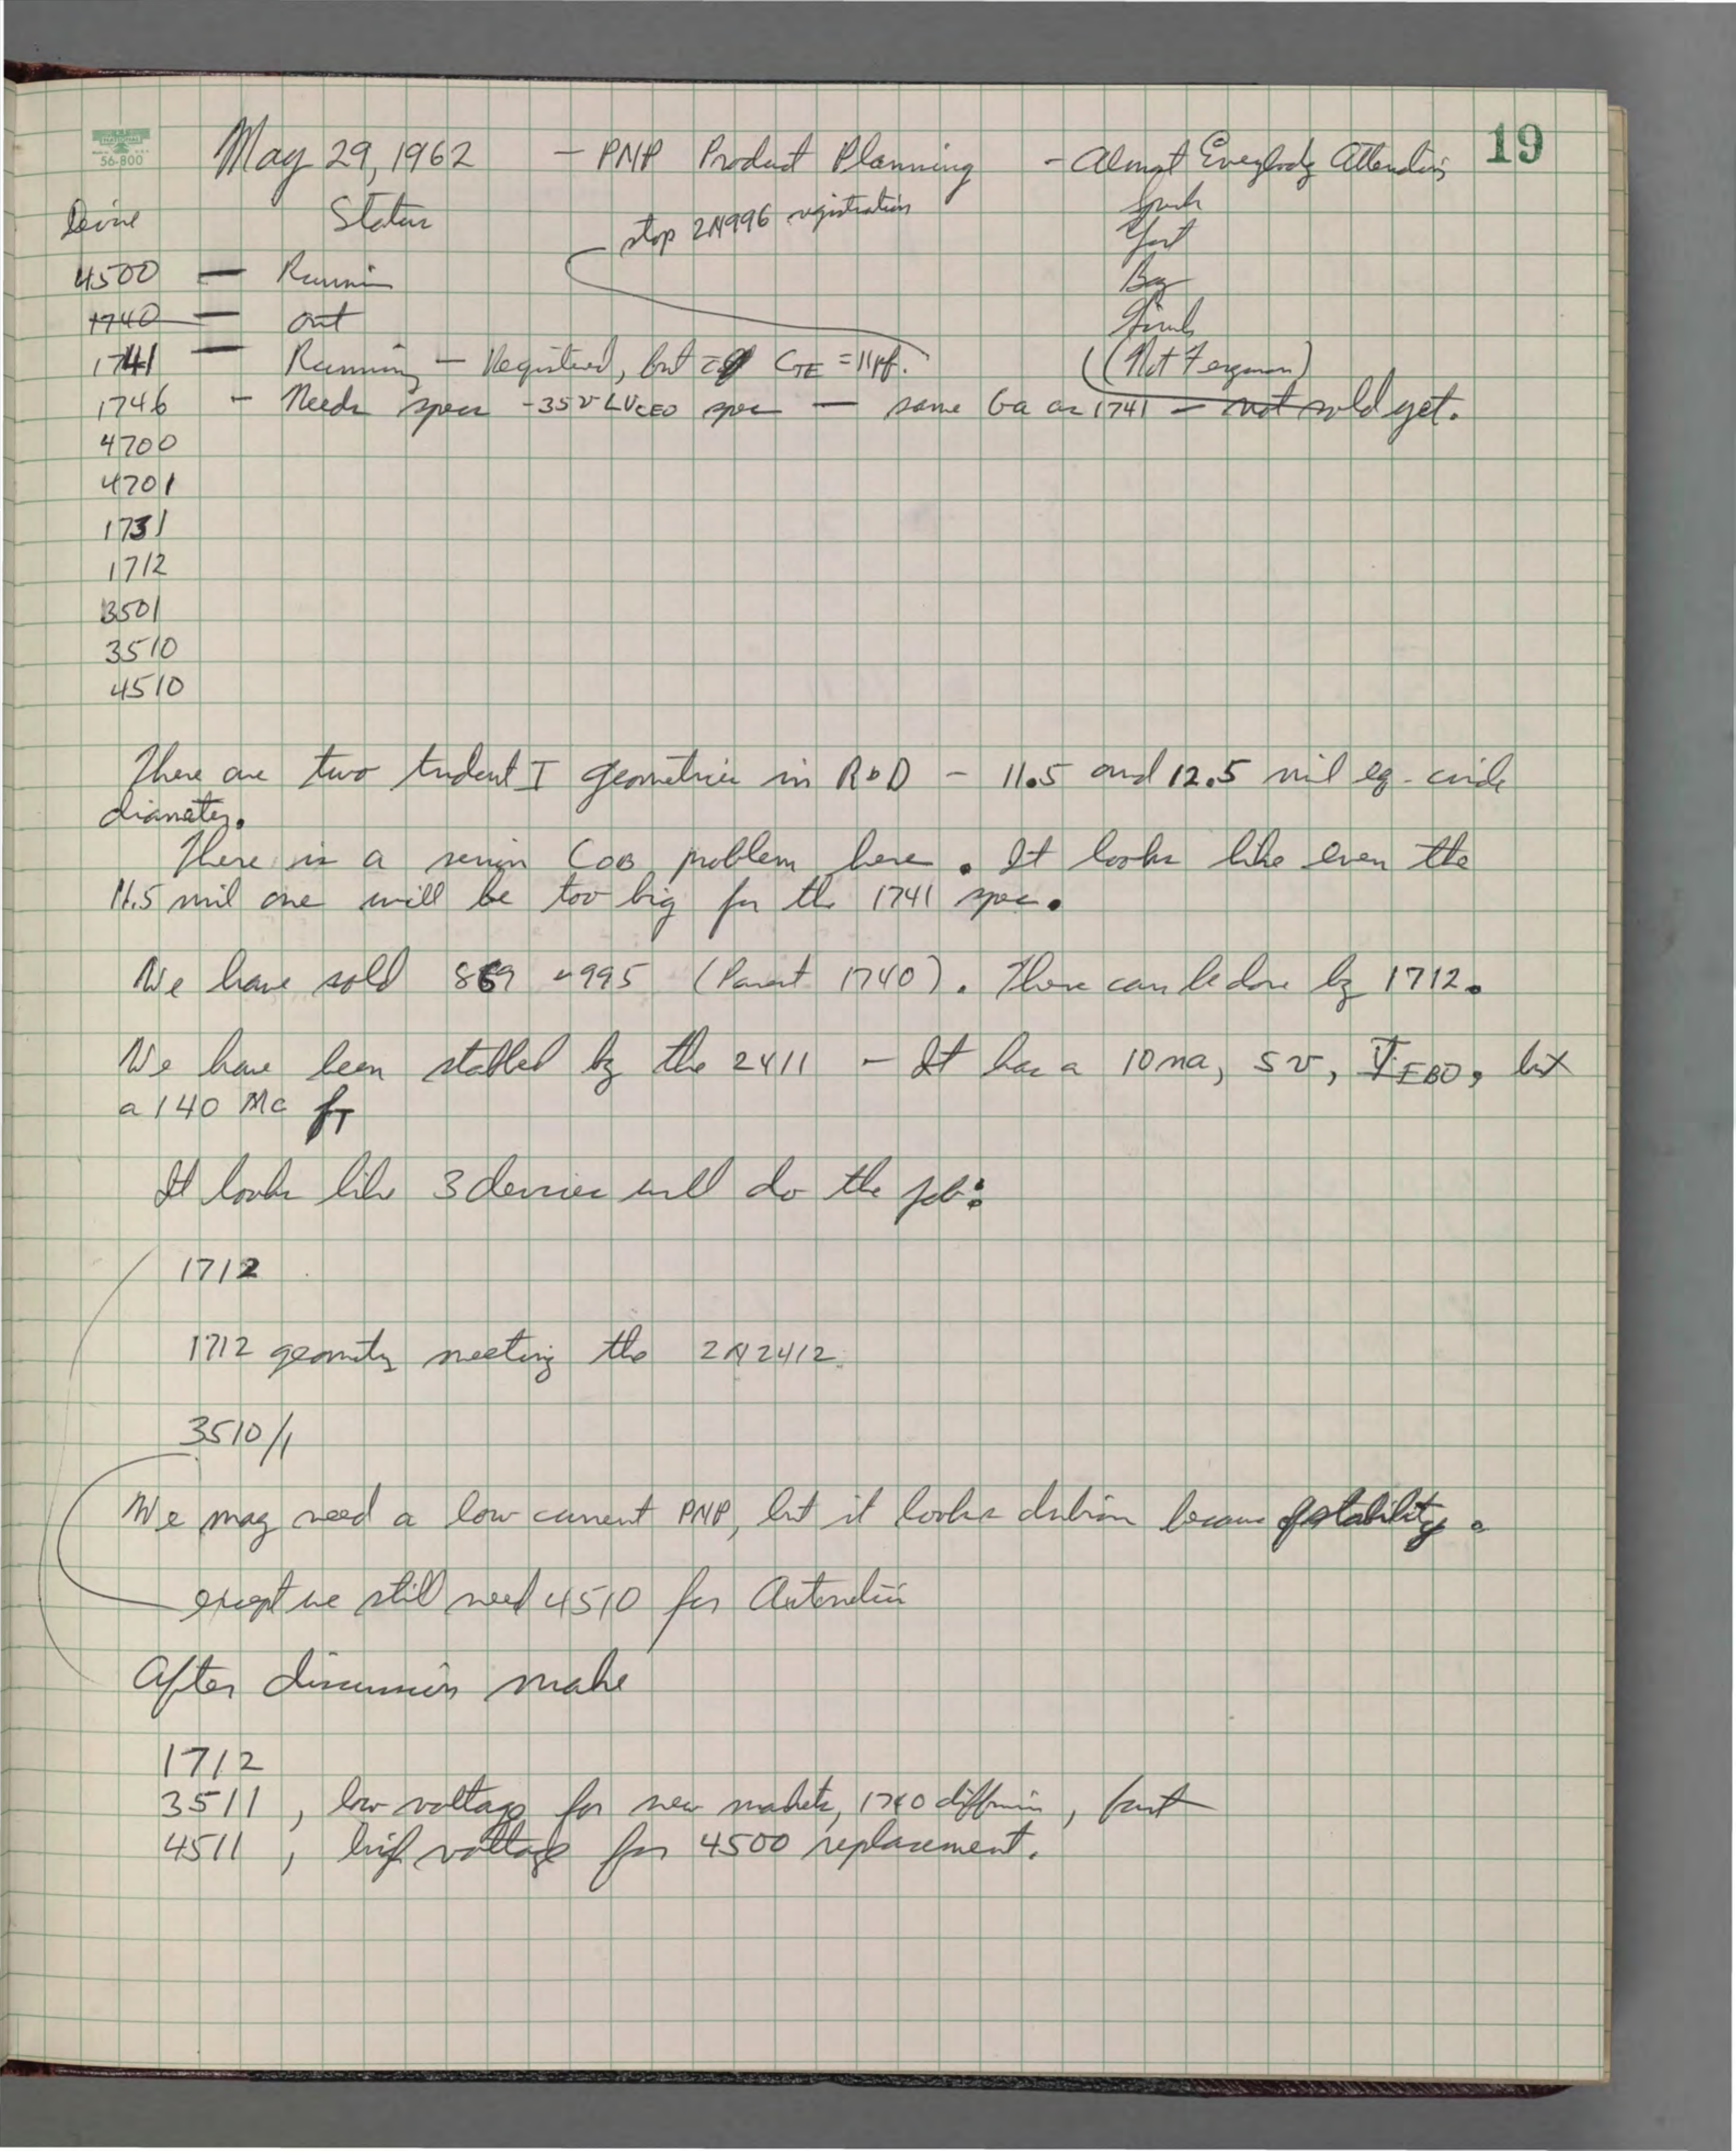 19
NATIONAL
56-800
May 29, 1962 - PNP Product Planning - Almost Everybody Attending
Device Status stop 2N996 registration
4500 — Running Bay
1740 — out
1741 — Running — Registered, but CTE = 11pf. (Not Ferguson)
1746 - Needs specs - 35V LVCEO spec — same Ga as 1741 - not sold yet.
4700
4701
1731
1712
3501
3510
4510
There are two trident I geometries in R&D - 11.5 and 12.5 mil eq. circle
diameter.
There is a serious COB problem here. It looks like even the
11.5 mil one will be too big for the 1741 spec.
We have sold 869 & 995 (Parent 1740). These can be done by 1712.
We have been stabbed by the 2411 - It has a 10 na, 5 v, IEBO, but
a 140 Mc fT
It looks like 3 devices will do the job:
1712
1712 geometry meeting the 2N2412.
3510/1
We may need a low current PNP, but it looks dubious because of stability.
except we still need 4510 for Autonetics
After discussion make
1712
3511, low voltage for new markets, 1740 diffusion, fast
4511, high voltage for 4500 replacement.